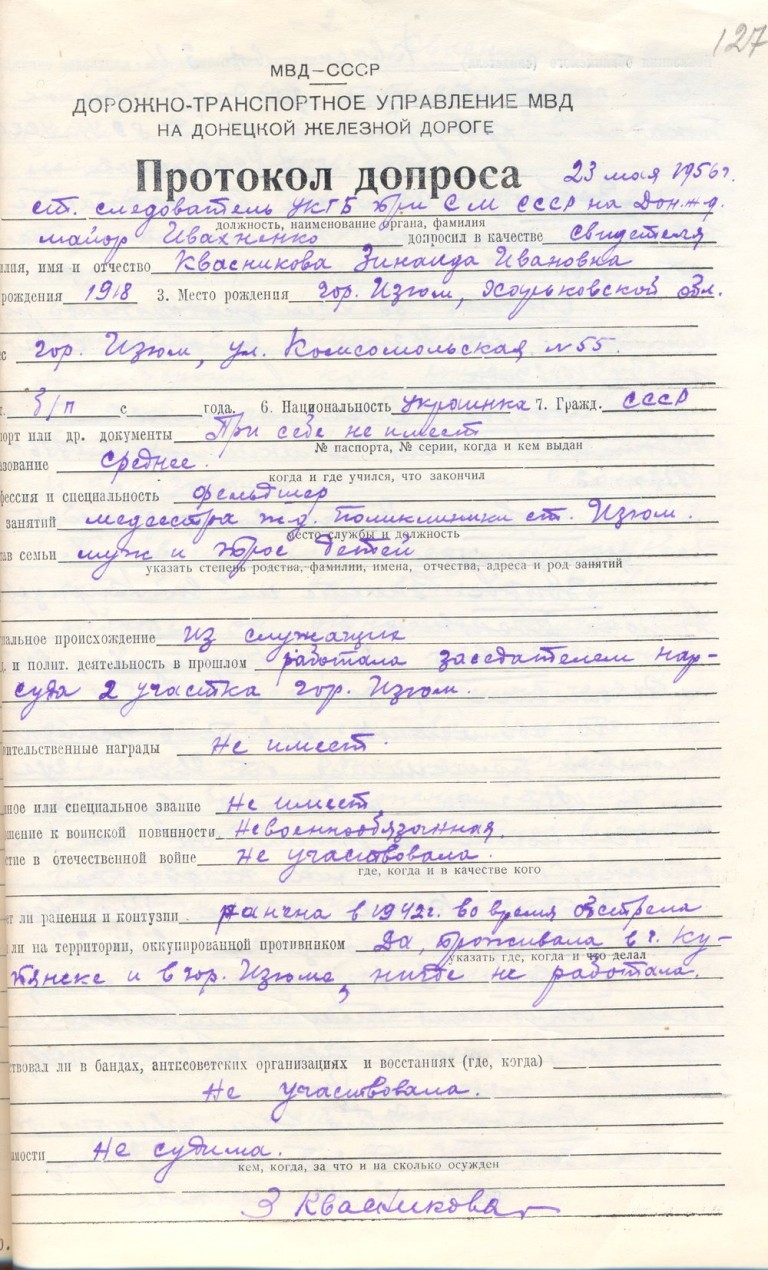 127
МВД–СССР
ДОРОЖНО-ТРАНСПОРТНОЕ УПРАВЛЕНИЕ МВД
НА ДОНЕЦКОЙ ЖЕЛЕЗНОЙ ДОРОГЕ
Протокол допроса 23 мая 1956г.
ст. следователь УКГБ при С М СССР на Дон.ж.д.
должность, наименование органа, фамилия
майор Ивахненко допросил в качестве свидетеля
илия, имя и отчество Квасникова Зинаида Ивановна
рождения 1918 3. Место рождения гор. Изюм, Харьковской обл.
с гор. Изюм, ул. Комсомольская №55.
б/п с года. 6. Национальность украинка 7. Гражд. СССР
порт или др. документы При себе не имеет
№ паспорта, № серии, когда и кем выдан
зование среднее.
когда и где учился, что закончил
фессия и специальность фельдшер
занятий медсестра ж-д. поликлиники ст. Изюм.
место службы и должность
тав семьи муж и трое детей
указать степень родства, фамилии, имена, отчества, адреса и род занятий
иальное происхождение из служащих
и полит. деятельность в прошлом работала заседателем нар-
суда 2 участка гор. Изюм.
вительственные награды Не имеет.
нное или специальное звание Не имеет
ошение к воинской повинности Невоеннообязанная.
стие в отечественной войне Не участвовала.
где, когда и в качестве кого
ет ли ранения и контузии ранена в 1942г. во время обстрела
ли на территории, оккупированной противником Да, проживала в г. Ку-
указать где, когда и что делал
пянске и в гор. Изюме, нигде не работала.
ствовал ли в бандах, антисоветских организациях и восстаниях (где, когда)
Не участвовала.
имости Не судима.
кем, когда, за что и на сколько осужден
З Квасникова